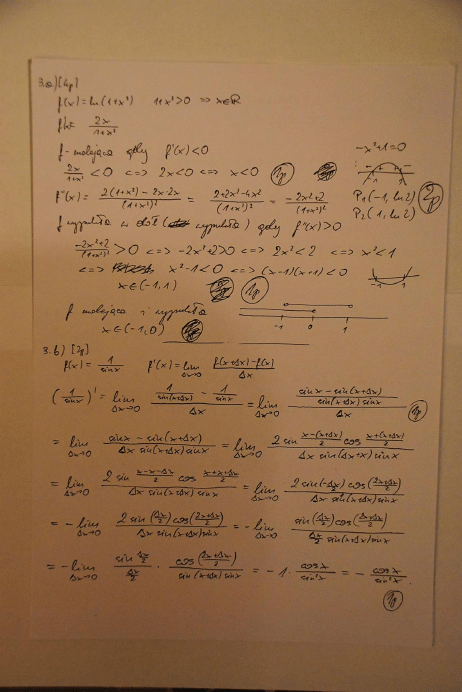 3.a) [4p]
f(x) = ln(1+x²) 1+x²>0 => x∈R
f'(x)= 2x/(1+x²)
f - malejąca gdy f'(x)<0 -x²+1=0
2x/(1+x²) < 0 <=> 2x<0 <=> x<0 1p -1 1
f''(x) = (2(1+x²) - 2x·2x)/(1+x²)² = (2+2x²-4x²)/(1+x²)² = (-2x²+2)/(1+x²)² P₁(-1, ln2) 2p
f wypukła w dół (wypukła) gdy f''(x)>0 P₂(1, ln2)
(-2x²+2)/(1+x²)² > 0 <=> -2x²+2>0 <=> 2x²<2 <=> x²<1
<=> x²-1<0 <=> (x-1)(x+1)<0 -1 1
x∈(-1,1) 1p
f malejąca i wypukła
x∈(-1,0) -1 0 1
3.b) [2p]
f(x) = 1/sinx f'(x) = lim Δx→0 (f(x+Δx)-f(x))/Δx
(1/sinx)' = lim Δx→0 (1/sin(x+Δx) - 1/sinx)/Δx = lim Δx→0 ((sinx - sin(x+Δx))/(sin(x+Δx)sinx))/Δx 1p
= lim Δx→0 (sinx - sin(x+Δx))/(Δx sin(x+Δx)sinx) = lim Δx→0 (2 sin (x-(x+Δx))/2 cos (x+(x+Δx))/2)/(Δx sin(Δx+x) sinx)
= lim Δx→0 (2 sin (x-x-Δx)/2 cos (x+x+Δx)/2)/(Δx sin(x+Δx) sinx) = lim Δx→0 (2 sin(-Δx/2) cos((2x+Δx)/2))/(Δx sin(x+Δx) sinx)
= -lim Δx→0 (2 sin(Δx/2) cos((2x+Δx)/2))/(Δx sin(x+Δx) sinx) = -lim Δx→0 (sin(Δx/2) cos((2x+Δx)/2))/(Δx/2 sin(x+Δx) sinx)
= -lim Δx→0 (sin Δx/2)/(Δx/2) · (cos((2x+Δx)/2))/(sin(x+Δx) sinx) = -1 · cosx/sin²x = - cosx/sin²x .
1p